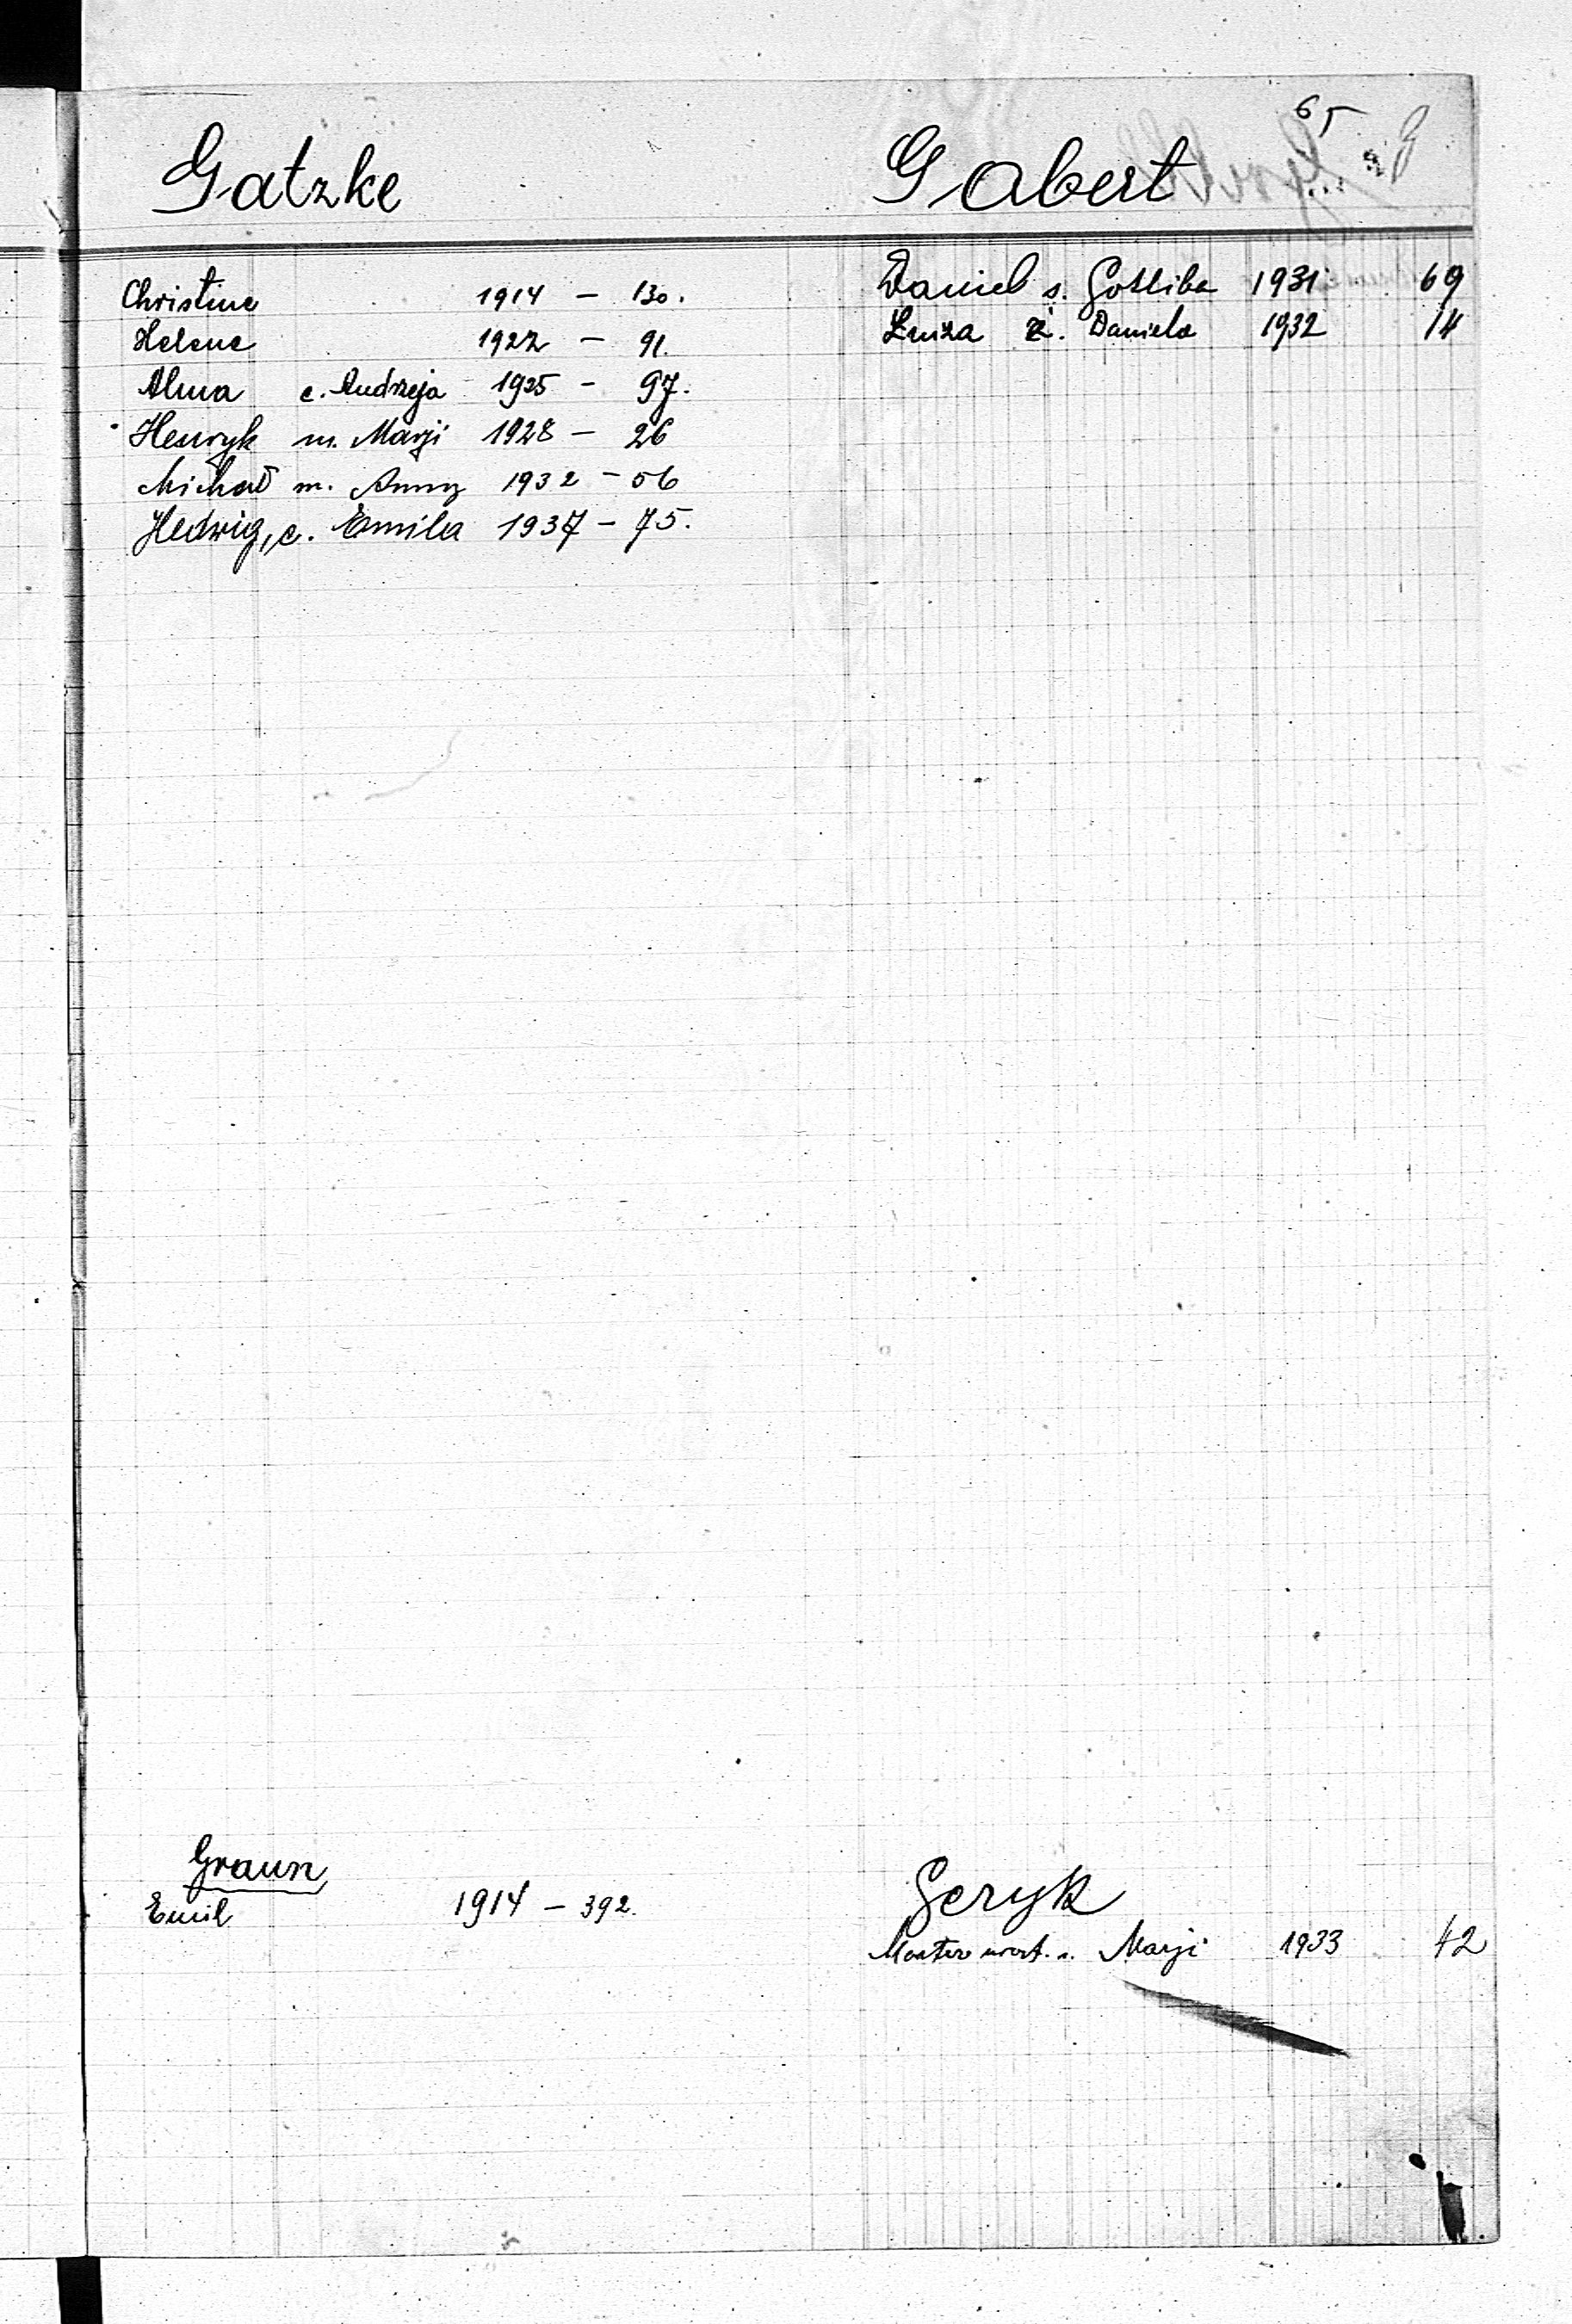 65
Gatzke
Christine 1914 - 130.
Helene 1922 - 91.
Alma c. Andrzeja 1925 - 97.
Henryk m. Marji 1928 - 26
Michał m. Anny 1932 - 56
Hedwig, c. Emila 1937 - 75.
Graun
Emil 1914 - 392.
Gabert
Daniel s. Gotliba 1931 69
Luiza ż. Daniela 1932 14
Geryk
Marji 1933 42